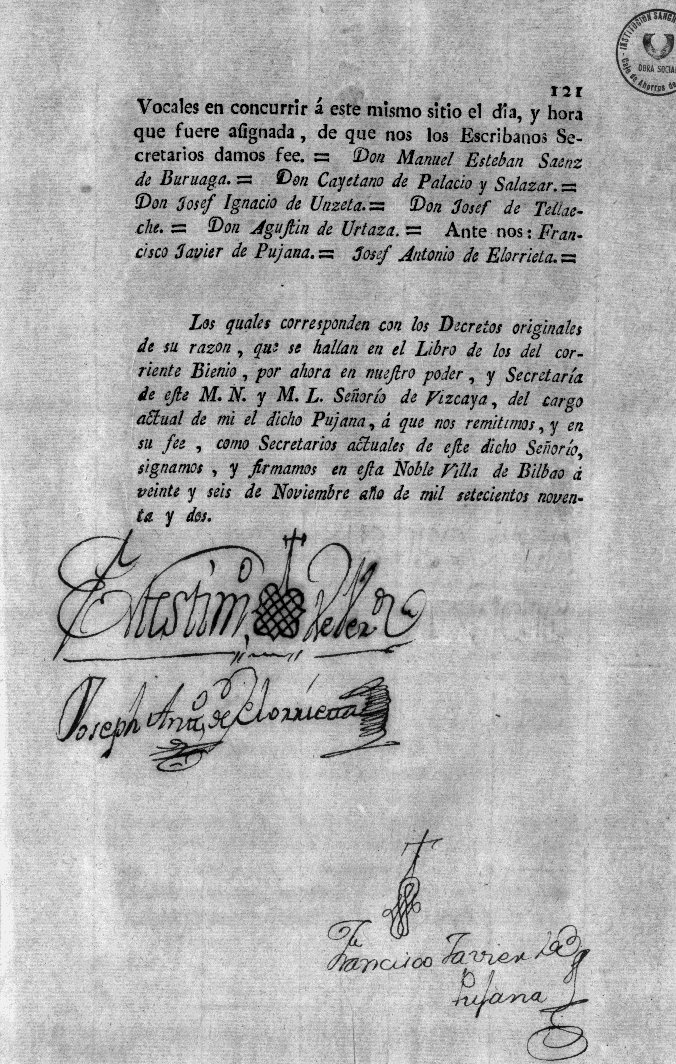 INSTITUCION SANCHO
OBRA SOCIAL
Caja de Ahorros de
121
Vocales en concurrir á este mismo sitio el dia, y hora
que fuere aſignada, de que nos los Escribanos Se-
cretarios damos fee. = Don Manuel Esteban Saenz
de Buruaga. = Don Cayetano de Palacio y Salazar. =
Don Josef Ignacio de Unzeta. = Don Josef de Tellae-
che. = Don Aguſtin de Urtaza. = Ante nos: Fran-
cisco Javier de Pujana. = Josef Antonio de Elorrieta. =
Los quales corresponden con los Decretos originales
de su razon, que se hallan en el Libro de los del cor-
riente Bienio, por ahora en nueſtro poder, y Secretaría
de eſte M. N. y M. L. Señorío de Vizcaya, del cargo
actual de mi el dicho Pujana, á que nos remitimos, y en
su fee, como Secretarios actuales de eſte dicho Señorío,
signamos, y firmamos en eſta Noble Villa de Bilbao á
veinte y seis de Noviembre año de mil setecientos noven-
ta y dos.
En testimo de verd
Joseph Anto de Elorrieta
Francisco Javier de
Pujana